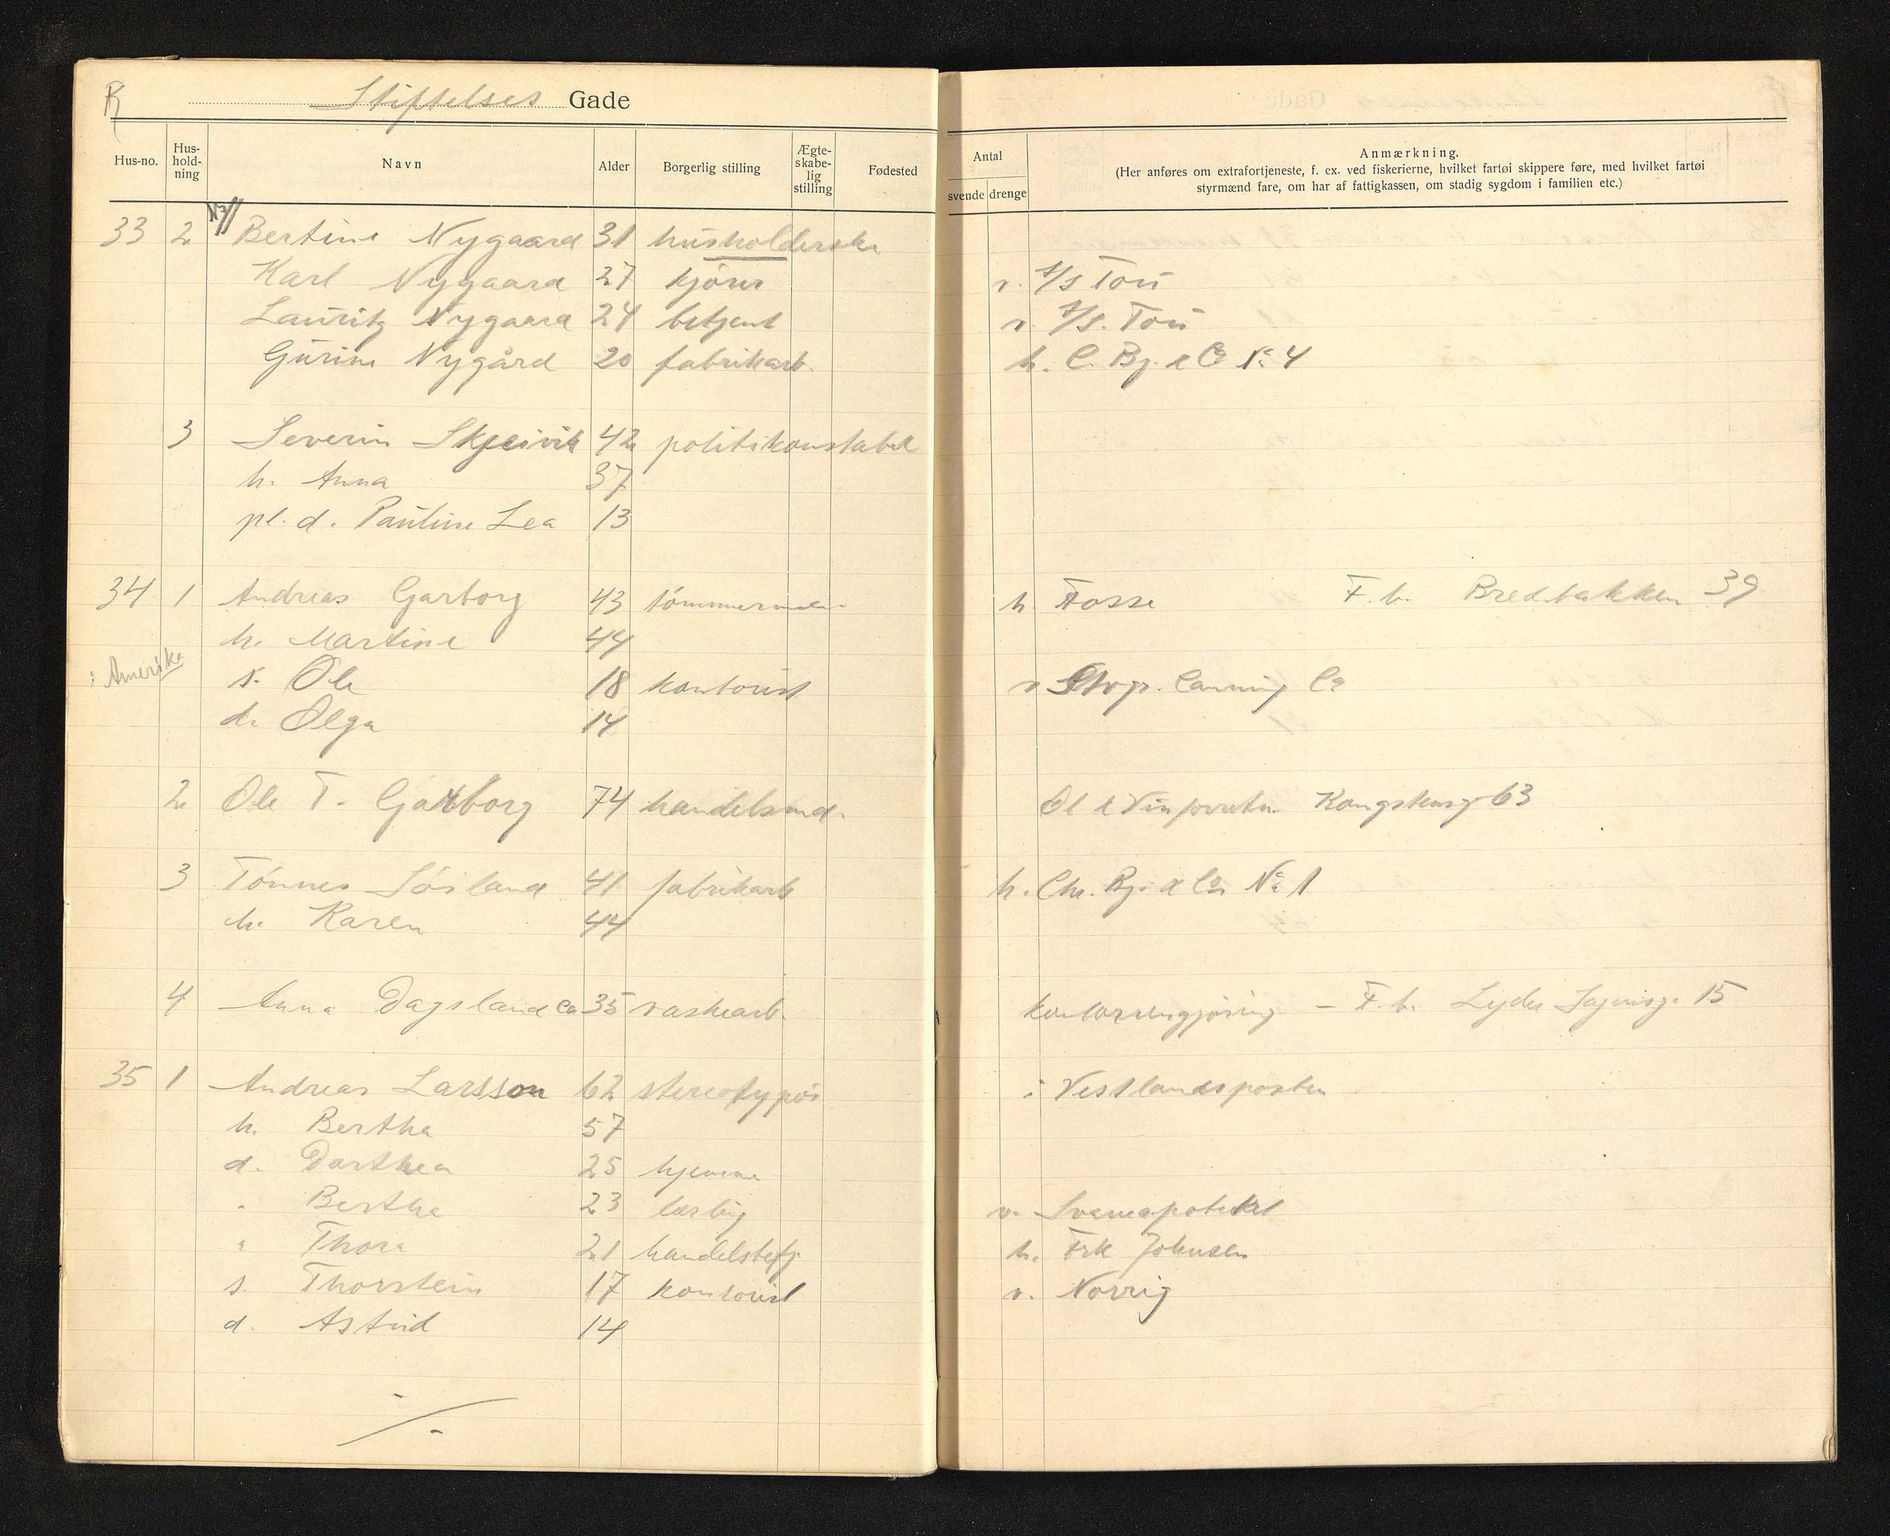 R Stiftelses Gade
Hus-no. Hus-hold-ning Navn Alder Borgerlig stilling Ægte-skabe-lig stilling Fødested Antal svende drenge Anmærkning.
(Her anføres om extrafortjeneste, f. ex. ved fiskerierne, hvilket fartøi skippere føre, med hvilket fartøi
styrmænd fare, om har af fattigkassen, om stadig sygdom i familien etc.)
33 2 Bertine Nygaard 31 husholderske
Karl Nygaard 27 kjører v. A/S Tou
Lauritz Nygaard 24 betjent v. A/S. Tou
Gurine Nygård 20 fabrikarb. h. C. Bj. & Co No 4
3 Severin Skjeivik 42 politikonstabel
h. Anna 37
pl. d. Pauline Lea 13
34 1 Andreas Garborg 43 tømmermand h Fosse F. b. Bredbakken 39
h. Martine 44
i Amerika s. Ole 18 kontorist v Stvgr. Canning Co
d. Olga 14
2 Ole T. Garborg 74 handelsmd. Øl & Vin Kongsteinsg 63
3 Tønnes Løiland 41 fabrikarb h. Chr. Bj. & Co No 1
h. Karen 44
4 Anna Dagsland ca 35 vaskearb. kontorrengjøring – F. b. Lyder Sagensg. 15
35 1 Andreas Larsson 62 stereotypør i Vestlandsposten
h. Bertha 57
d. Dorthea 25 hjemme
" Berthe 23 v. Svaneapoteket
" Thora 21 handelsbetj. h. Frk Johnsen
s. Thorstein 17 kontorist v. Norrig
d. Astrid 14